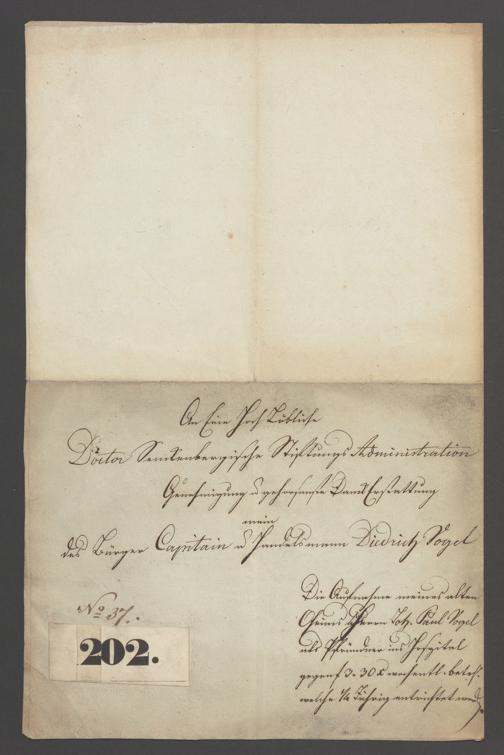 An Eine Hoch Löbliche
Doctor Senkenbergische Stiftungs Administration
Genehmigung u gehorsamste Dank Erstattung
mein
des Bürger Capitain u Handelsmann Diedrich Vogel
Die Aufnahme meines alten
Oheims Herrn Joh. Paul Vogel
als Pfründner ins Hospital
gegen f 3. 30 x wochentl.
welche 1/4 Jährig entrichtet
No 37.
202.